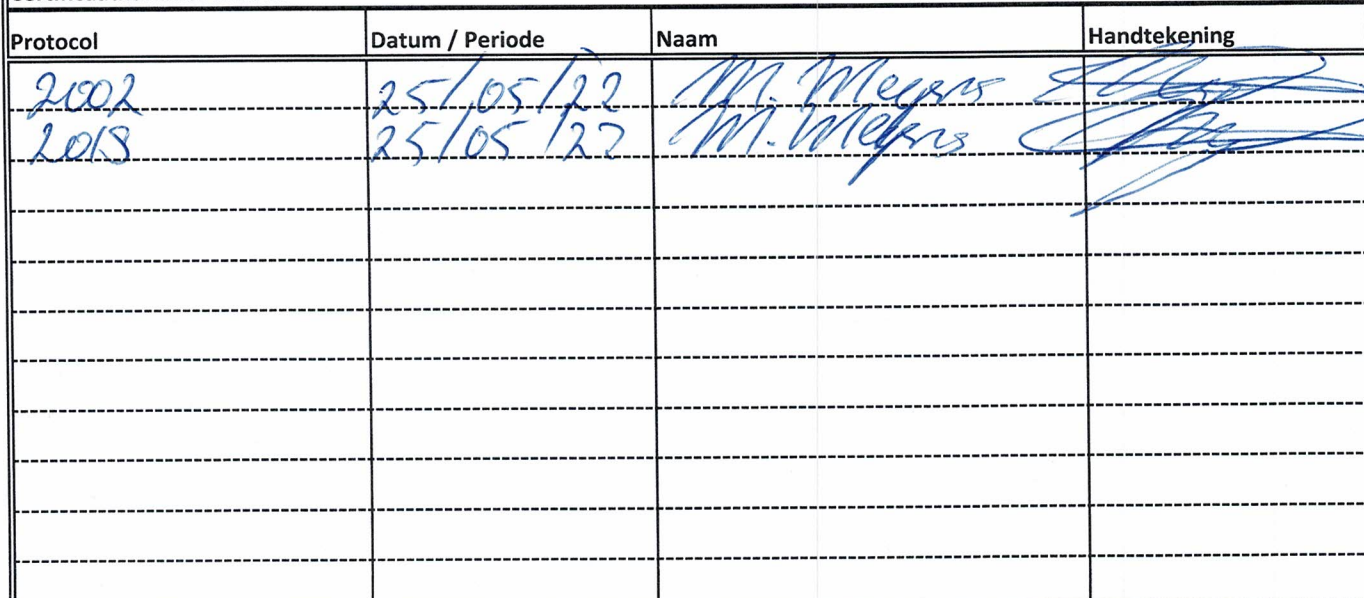 Protocol Datum / Periode Naam Handtekening
2002 25/05/22 M. Megens
2018 25/05/22 M. Megens